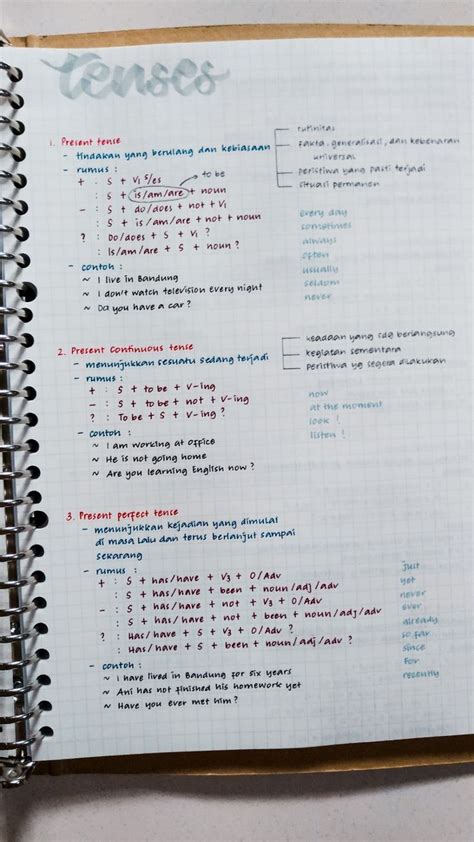 tenses
1. Present tense
- tindakan yang berulang dan kebiasaan
rutinitas
fakta, generalisasi, dan kebenaran
universal
peristiwa yang pasti terjadi
situasi permanen
- rumus :
+ : S + V1 s/es
to be
: S + is/am/are + noun
- : S + do/does + not + V1
: S + is/am/are + not + noun
? : Do/does + S + V1 ?
: Is/am/are + S + noun ?
every day
sometimes
always
often
usually
seldom
never
- contoh :
~ I live in Bandung
~ I don't watch television every night
~ Do you have a car ?
2. Present Continuous tense
- menunjukkan sesuatu sedang terjadi
keadaan yang sdg berlangsung
kegiatan sementara
peristiwa yg segera dilakukan
- rumus :
+ : S + to be + V-ing
- : S + to be + not + V-ing
? : To be + S + V-ing ?
now
at the moment
look !
listen !
- contoh :
~ I am working at office
~ He is not going home
~ Are you learning English now ?
3. Present perfect tense
- menunjukkan kejadian yang dimulai
di masa lalu dan terus berlanjut sampai
sekarang
- rumus :
+ : S + has/have + V3 + O/Adv
: S + has/have + been + noun/adj/adv
- : S + has/have + not + V3 + O/Adv
: S + has/have + not + been + noun/adj/adv
? : Has/have + S + V3 + O/Adv ?
: Has/have + S + been + noun/adj/adv ?
just
yet
never
ever
already
so far
since
for
recently
- contoh :
~ I have lived in Bandung for six years
~ Ani has not finished his homework yet
~ Have you ever met him ?